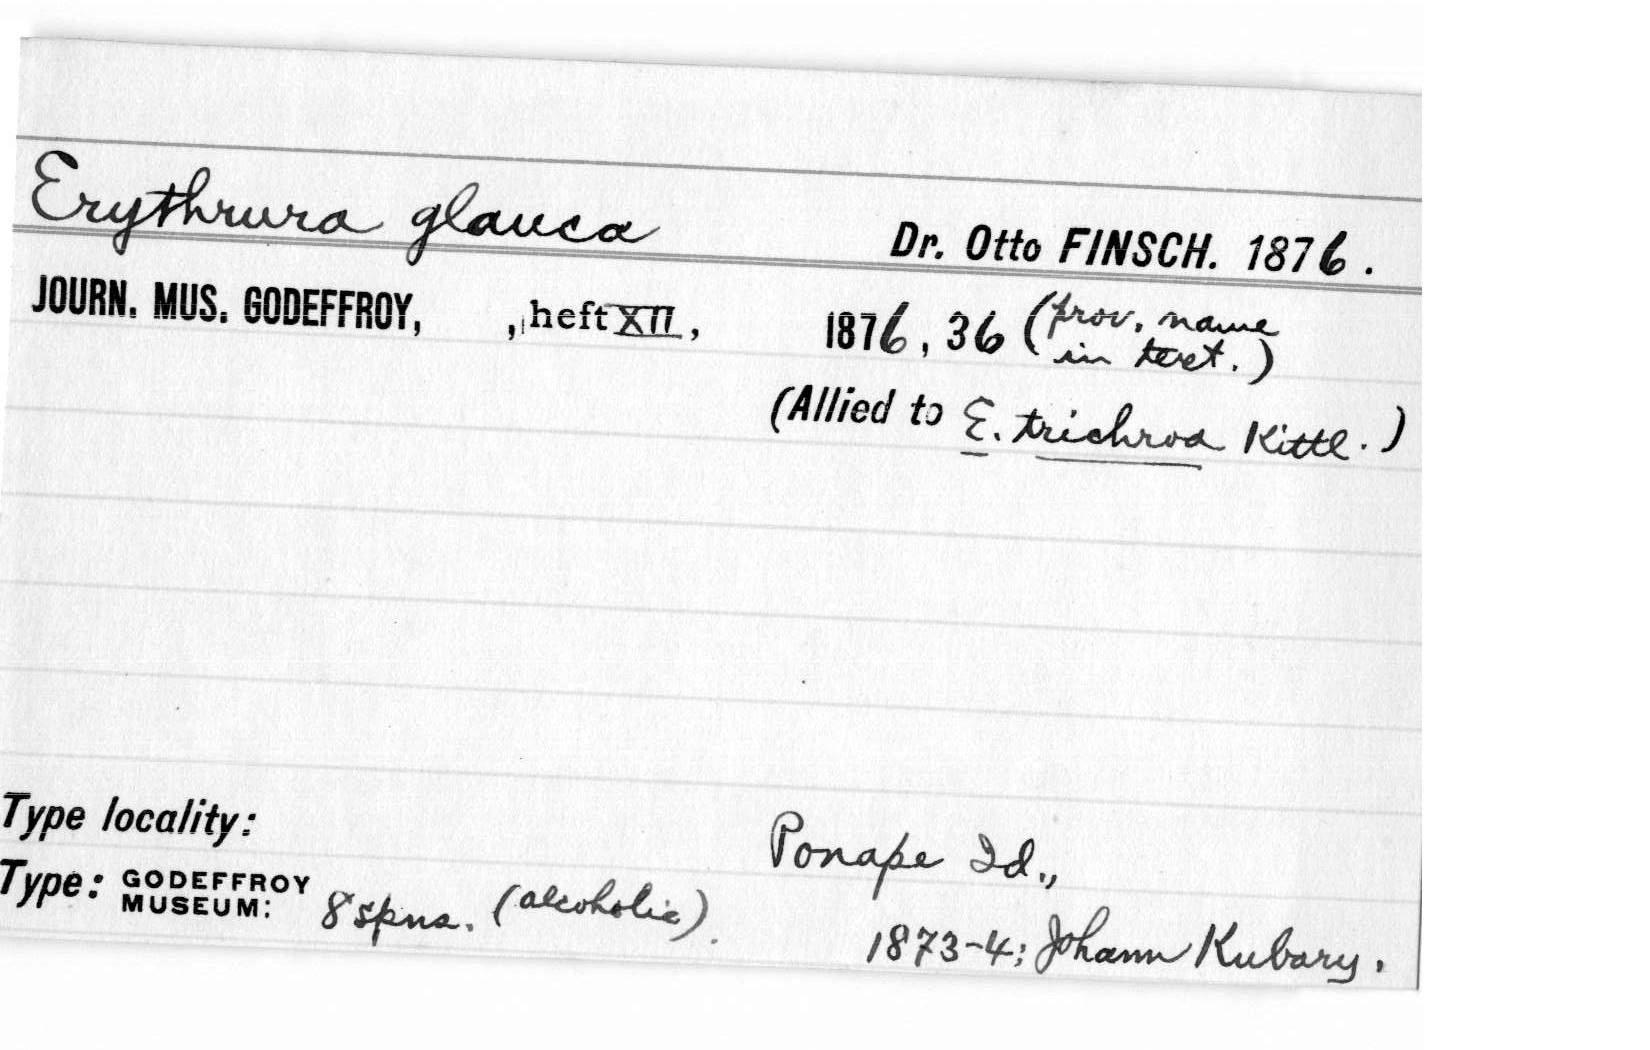 Erythrura glauca Dr. Otto FINSCH. 1876.
JOURN. MUS. GODEFFROY, , heft XII, 1876, 36 (prov. name
in text.)
(Allied to E. trichroa Kittl.)
Type locality: Ponape Id.,
Type: GODEFFROY
MUSEUM: 8 spns. (alcoholic).
1873-4; Johann Kubary.